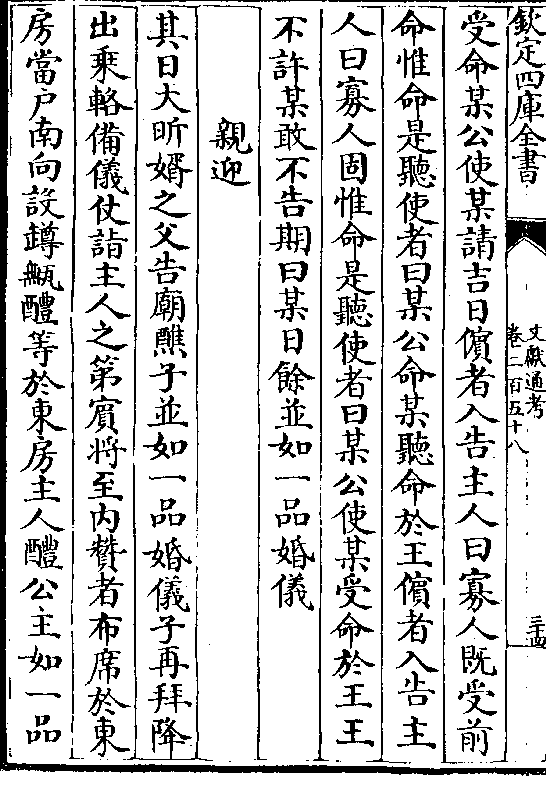 欽定四庫全書
文獻通考
卷二百五十八
三十四
受命某公使某請吉日儐者入告主人曰寡人既受前
命惟命是聽使者曰某公命某聽命於王儐者入告主
人曰寡人固惟命是聽使者曰某公使某受命於王王
不許某敢不告期曰某日餘並如一品婚儀
親迎
其日大昕婿之父告廟醮子並如一品婚儀子再拜降
出乘輅備儀仗詣主人之第賓將至内贊者布席於東
房當户南向設罇甒醴等於東房主人醴公主如一品